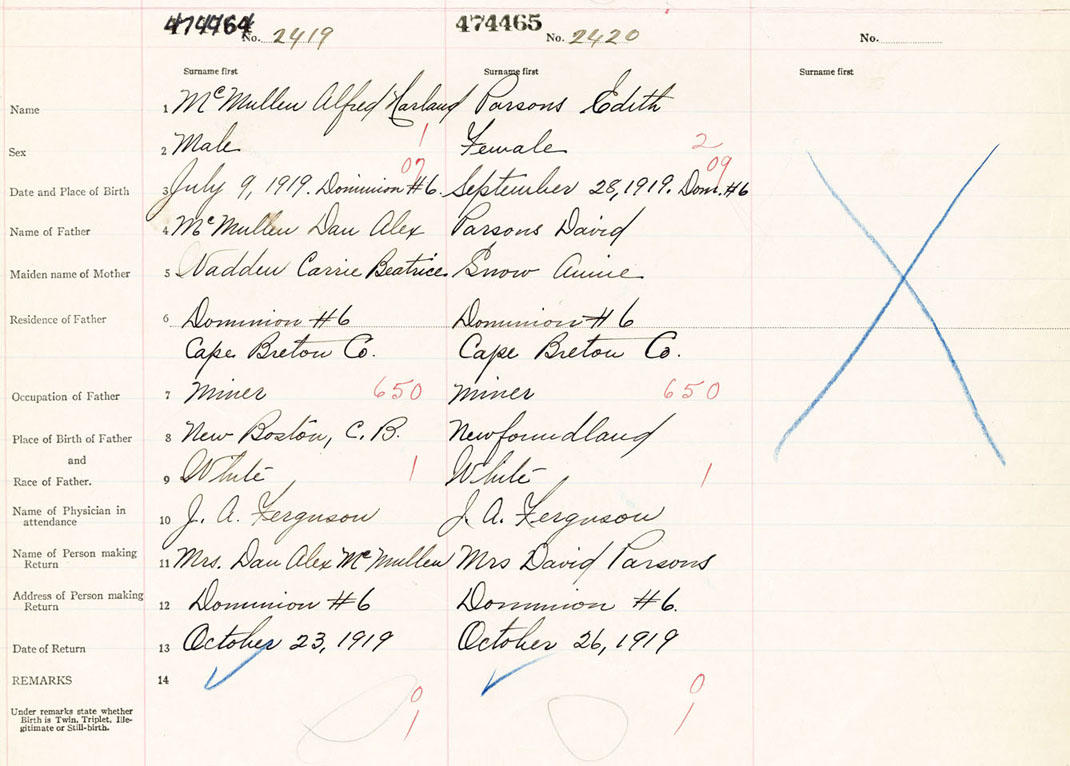 474464 474465
No. 2419 No. 2420 No.
Surname first Surname first Surname first
Name 1 McMullen Alfred Harland Parsons Edith
1
Sex 2 Male Female 2
07 09
Date and Place of Birth 3 July 9, 1919. Dominion #6. September 28, 1919. Dom. #6
Name of Father 4 McMullen Dan Alex Parsons David
Maiden name of Mother 5 Nadden Carrie Beatrice Snow Annie
Residence of Father 6 Dominion #6 Dominion #6
Cape Breton Co. Cape Breton Co.
Occupation of Father 7 Miner 650 Miner 650
Place of Birth of Father 8 New Boston, C.B. Newfoundland
and
Race of Father. 9 White 1 White 1
Name of Physician in
attendance 10 J. A. Ferguson J. A. Ferguson
Name of Person making
Return 11 Mrs. Dan Alex McMullen Mrs David Parsons
Address of Person making
Return 12 Dominion #6 Dominion #6.
Date of Return 13 October 23, 1919 October 26, 1919
REMARKS 14
0 0
Under remarks state whether
Birth is Twin, Triplet, Ille-
gitimate or Still-birth.
1 1